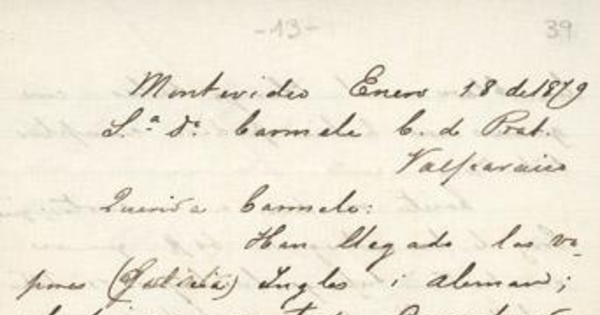 -13- 39
Montevideo Enero 18 de 1879
S.ª Dª Carmela C. de Prat.
Valparaiso
Querida Carmela:
Han llegado los va-
pores (Galicia) Ingles i Aleman;